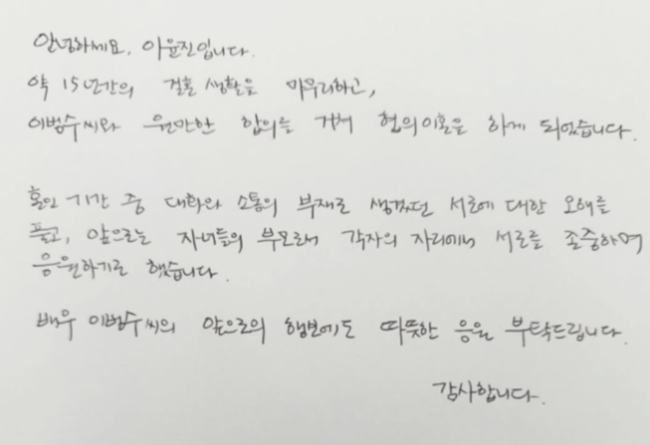 안녕하세요, 이윤진입니다.
약 15년간의 결혼 생활을 마무리하고,
이범수씨와 원만한 합의를 거쳐 협의이혼을 하게 되었습니다.
혼인 기간 중 대화와 소통의 부재로 생겼던 서로에 대한 오해를
풀고, 앞으로는 자녀들의 부모로써 각자의 자리에서 서로를 존중하며
응원하기로 했습니다.
배우 이범수씨의 앞으로의 행보에도 따뜻한 응원 부탁드립니다.
감사합니다.